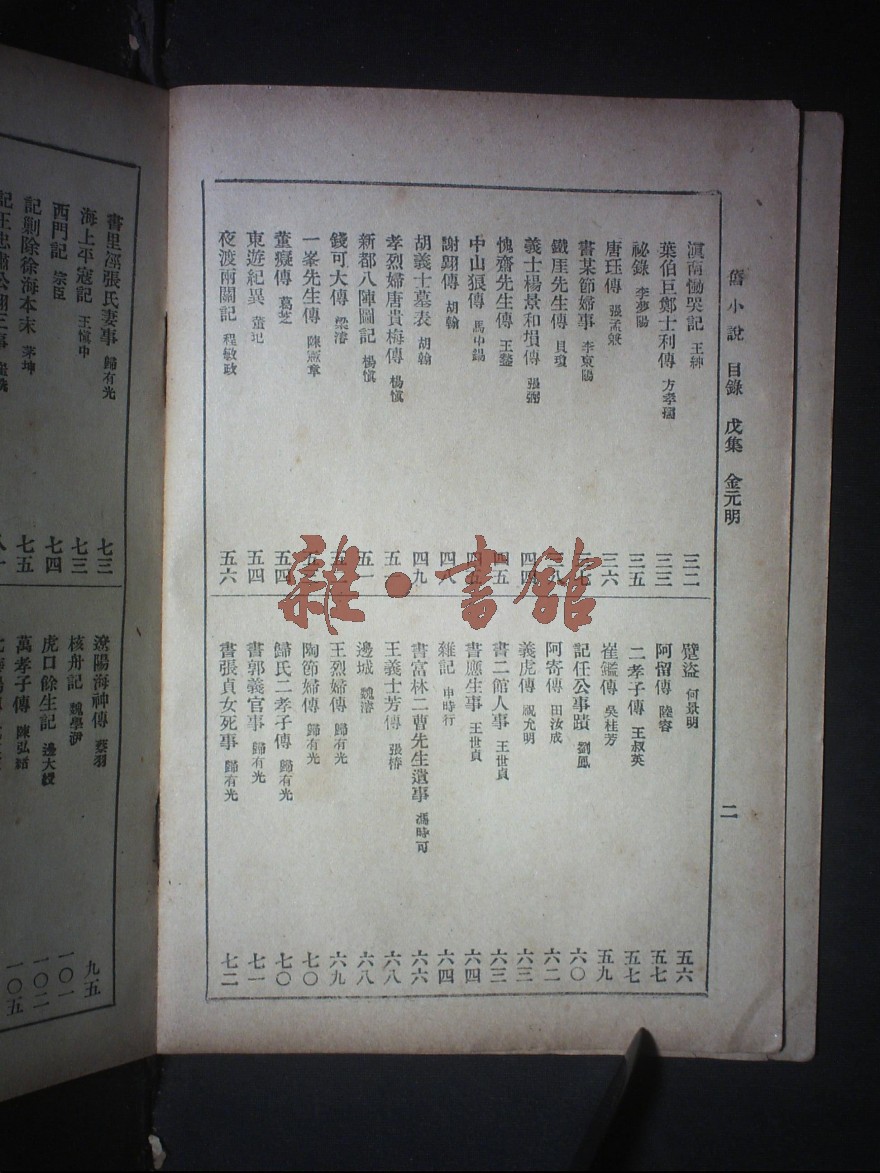 舊小說 目錄 戊集 金元明
二
滇南慟哭記 王紳 三二
葉伯巨鄭士利傳 方孝孺 三三
祕錄 李夢陽 三五
唐珏傳 張孟兼 三六
書某節婦事 李東陽 三七
鐵崖先生傳 貝瓊
義士楊景和塤傳 張弼 四四
愧齋先生傳 王鏊 四五
中山狼傳 馬中錫 四五
謝翺傳 胡翰 四八
胡義士墓表 胡翰 四九
孝烈婦唐貴梅傳 楊愼 五
新都八陣圖記 楊愼 五一
錢可大傳 梁潛
一峯先生傳 陳憲章
董癡傳 葛芝 五四
東遊紀異 董玘 五四
夜渡兩關記 程敏政 五六
躄盜 何景明 五六
阿留傳 陸容 五七
二孝子傳 王叔英 五七
崔鑑傳 吳桂芳 五九
記任公事蹟 劉鳳 六〇
阿寄傳 田汝成 六二
義虎傳 祝允明 六三
書二館人事 王世貞 六三
書應生事 王世貞 六四
雜記 申時行 六四
書富林二曹先生遺事 馮時可 六六
王義士芳傳 張椿 六八
邊城 魏濬 六八
王烈婦傳 歸有光 六九
陶節婦傳 歸有光 七〇
歸氏二孝子傳 歸有光 七〇
書郭義官事 歸有光 七一
書張貞女死事 歸有光 七二
書里涇張氏妻事 歸有光 七三
海上平寇記 王愼中 七三
西門記 宗臣 七四
記剿除徐海本末 茅坤 七五
遼陽海神傳 蔡羽 九五
核舟記 魏學洢 一〇一
虎口餘生記 邊大綬 一〇二
萬孝子傳 陳弘緒 一〇五
雜·書館